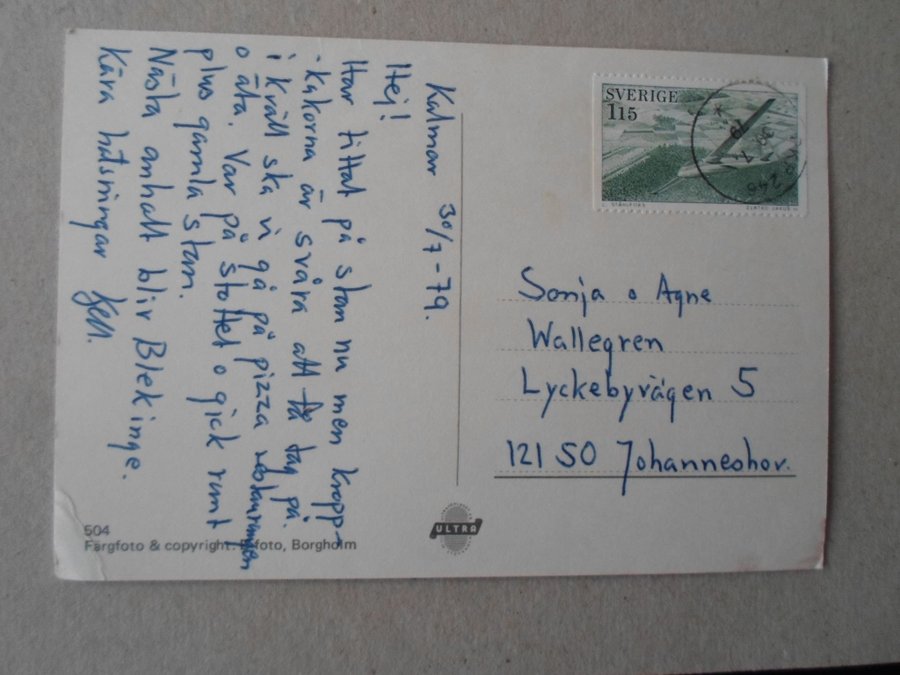 Kalmar 30/7-79.
Hej!
Har tittat på stan nu men kropp-
kakorna är svåra att få tag på.
i kväll ska vi gå på pizza restaurangen
o äta. Var på slottet o gick runt
plus gamla stan.
Nästa anhalt blir Blekinge.
Kära hälsningar
SVERIGE
115
Sonja o Agne
Wallegren
Lyckebyvägen 5
121 50 Johanneshov.
504
Färgfoto & copyright: foto, Borgholm
ULTRA